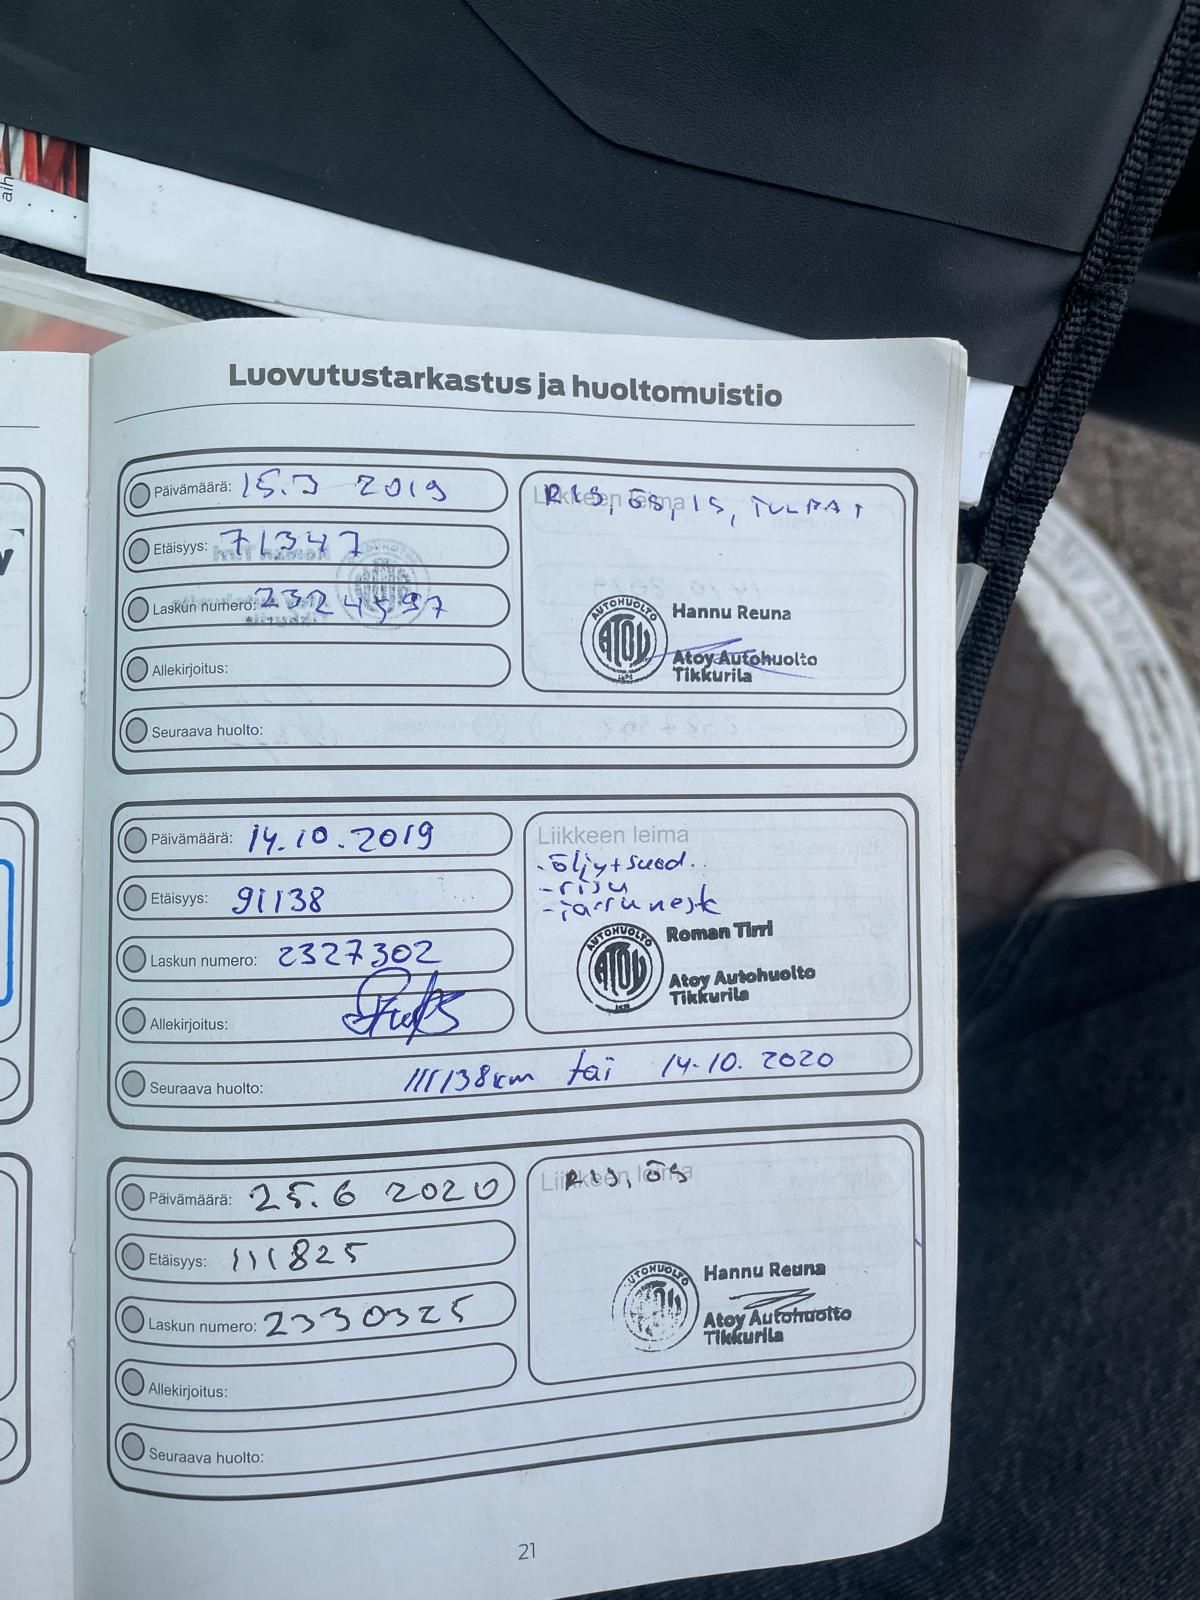 aih
Luovutustarkastus ja huoltomuistio
Päivämäärä: 15.3 2019
Liikkeen leima
RIS, ÖS, IS, TULPAT
Etäisyys: 71347
Laskun numero: 2324597
AUTOHUOLTO
ATOY
Hannu Reuna
Atoy Autohuolto
Tikkurila
Allekirjoitus:
Seuraava huolto:
Päivämäärä: 14.10.2019
Liikkeen leima
- öljy+suod.
- risu
- jarruneste
Etäisyys: 91138
Laskun numero: 2327302
AUTOHUOLTO
ATOY
Roman Tirri
Atoy Autohuolto
Tikkurila
Allekirjoitus:
Seuraava huolto: 111138km tai 14.10.2020
Päivämäärä: 25.6 2020
Liikkeen leima
RIS, ÖS
Etäisyys: 111825
Laskun numero: 2330325
AUTOHUOLTO
ATOY
Hannu Reuna
Atoy Autohuolto
Tikkurila
Allekirjoitus:
Seuraava huolto:
21